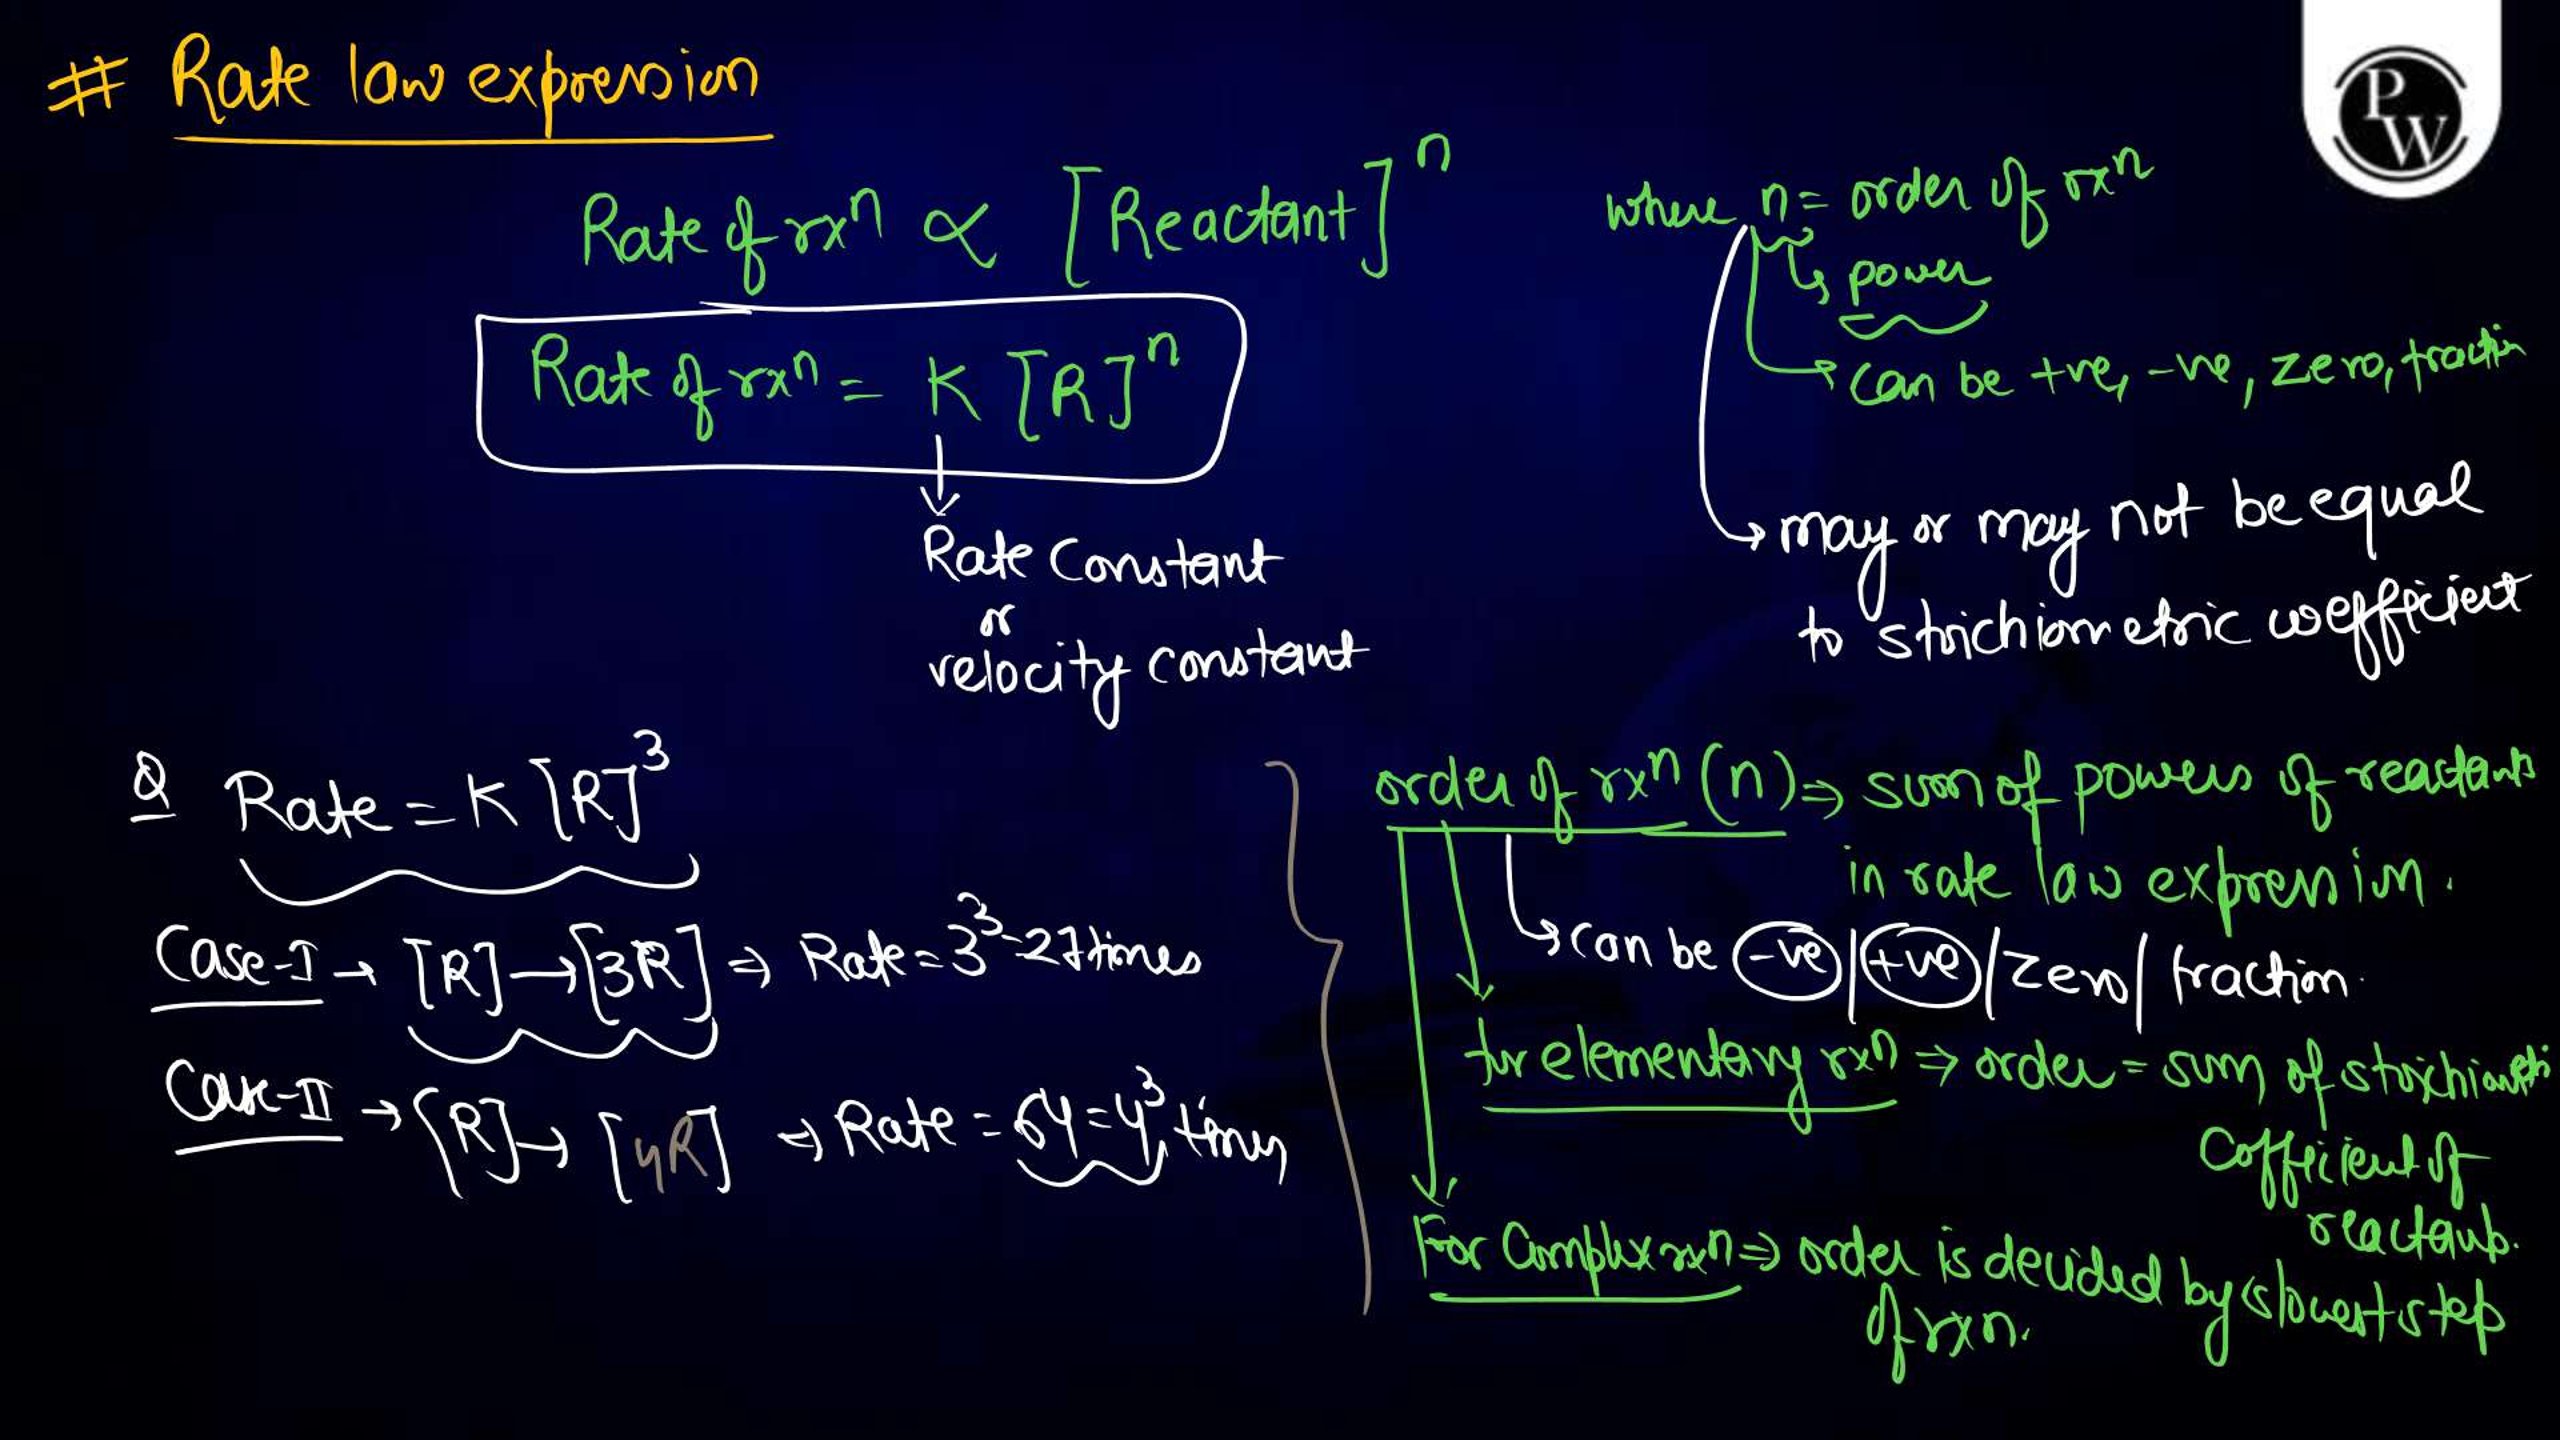 # Rate law expression
PW
Rate of rxⁿ ∝ [Reactant]ⁿ
where n = order of rxⁿ
↳ power
→ can be +ve, -ve, zero, fraction
Rate of rxⁿ = K [R]ⁿ
↓
Rate Constant
or
velocity constant
→ may or may not be equal
to stoichiometric coefficient
Q Rate = K [R]³
Case-I → [R] → [3R] ⇒ Rate = 3³ = 27 times
Case-II → [R] → [4R] ⇒ Rate = 64 = 4³ times
order of rxⁿ (n) ⇒ sum of powers of reactants
in rate law expression.
↳ can be -ve / +ve / zero / fraction.
for elementary rxⁿ ⇒ order = sum of stoichiometric
Cofficient of
reactants.
For Complex rxⁿ ⇒ order is decided by slowest step
of rxn.